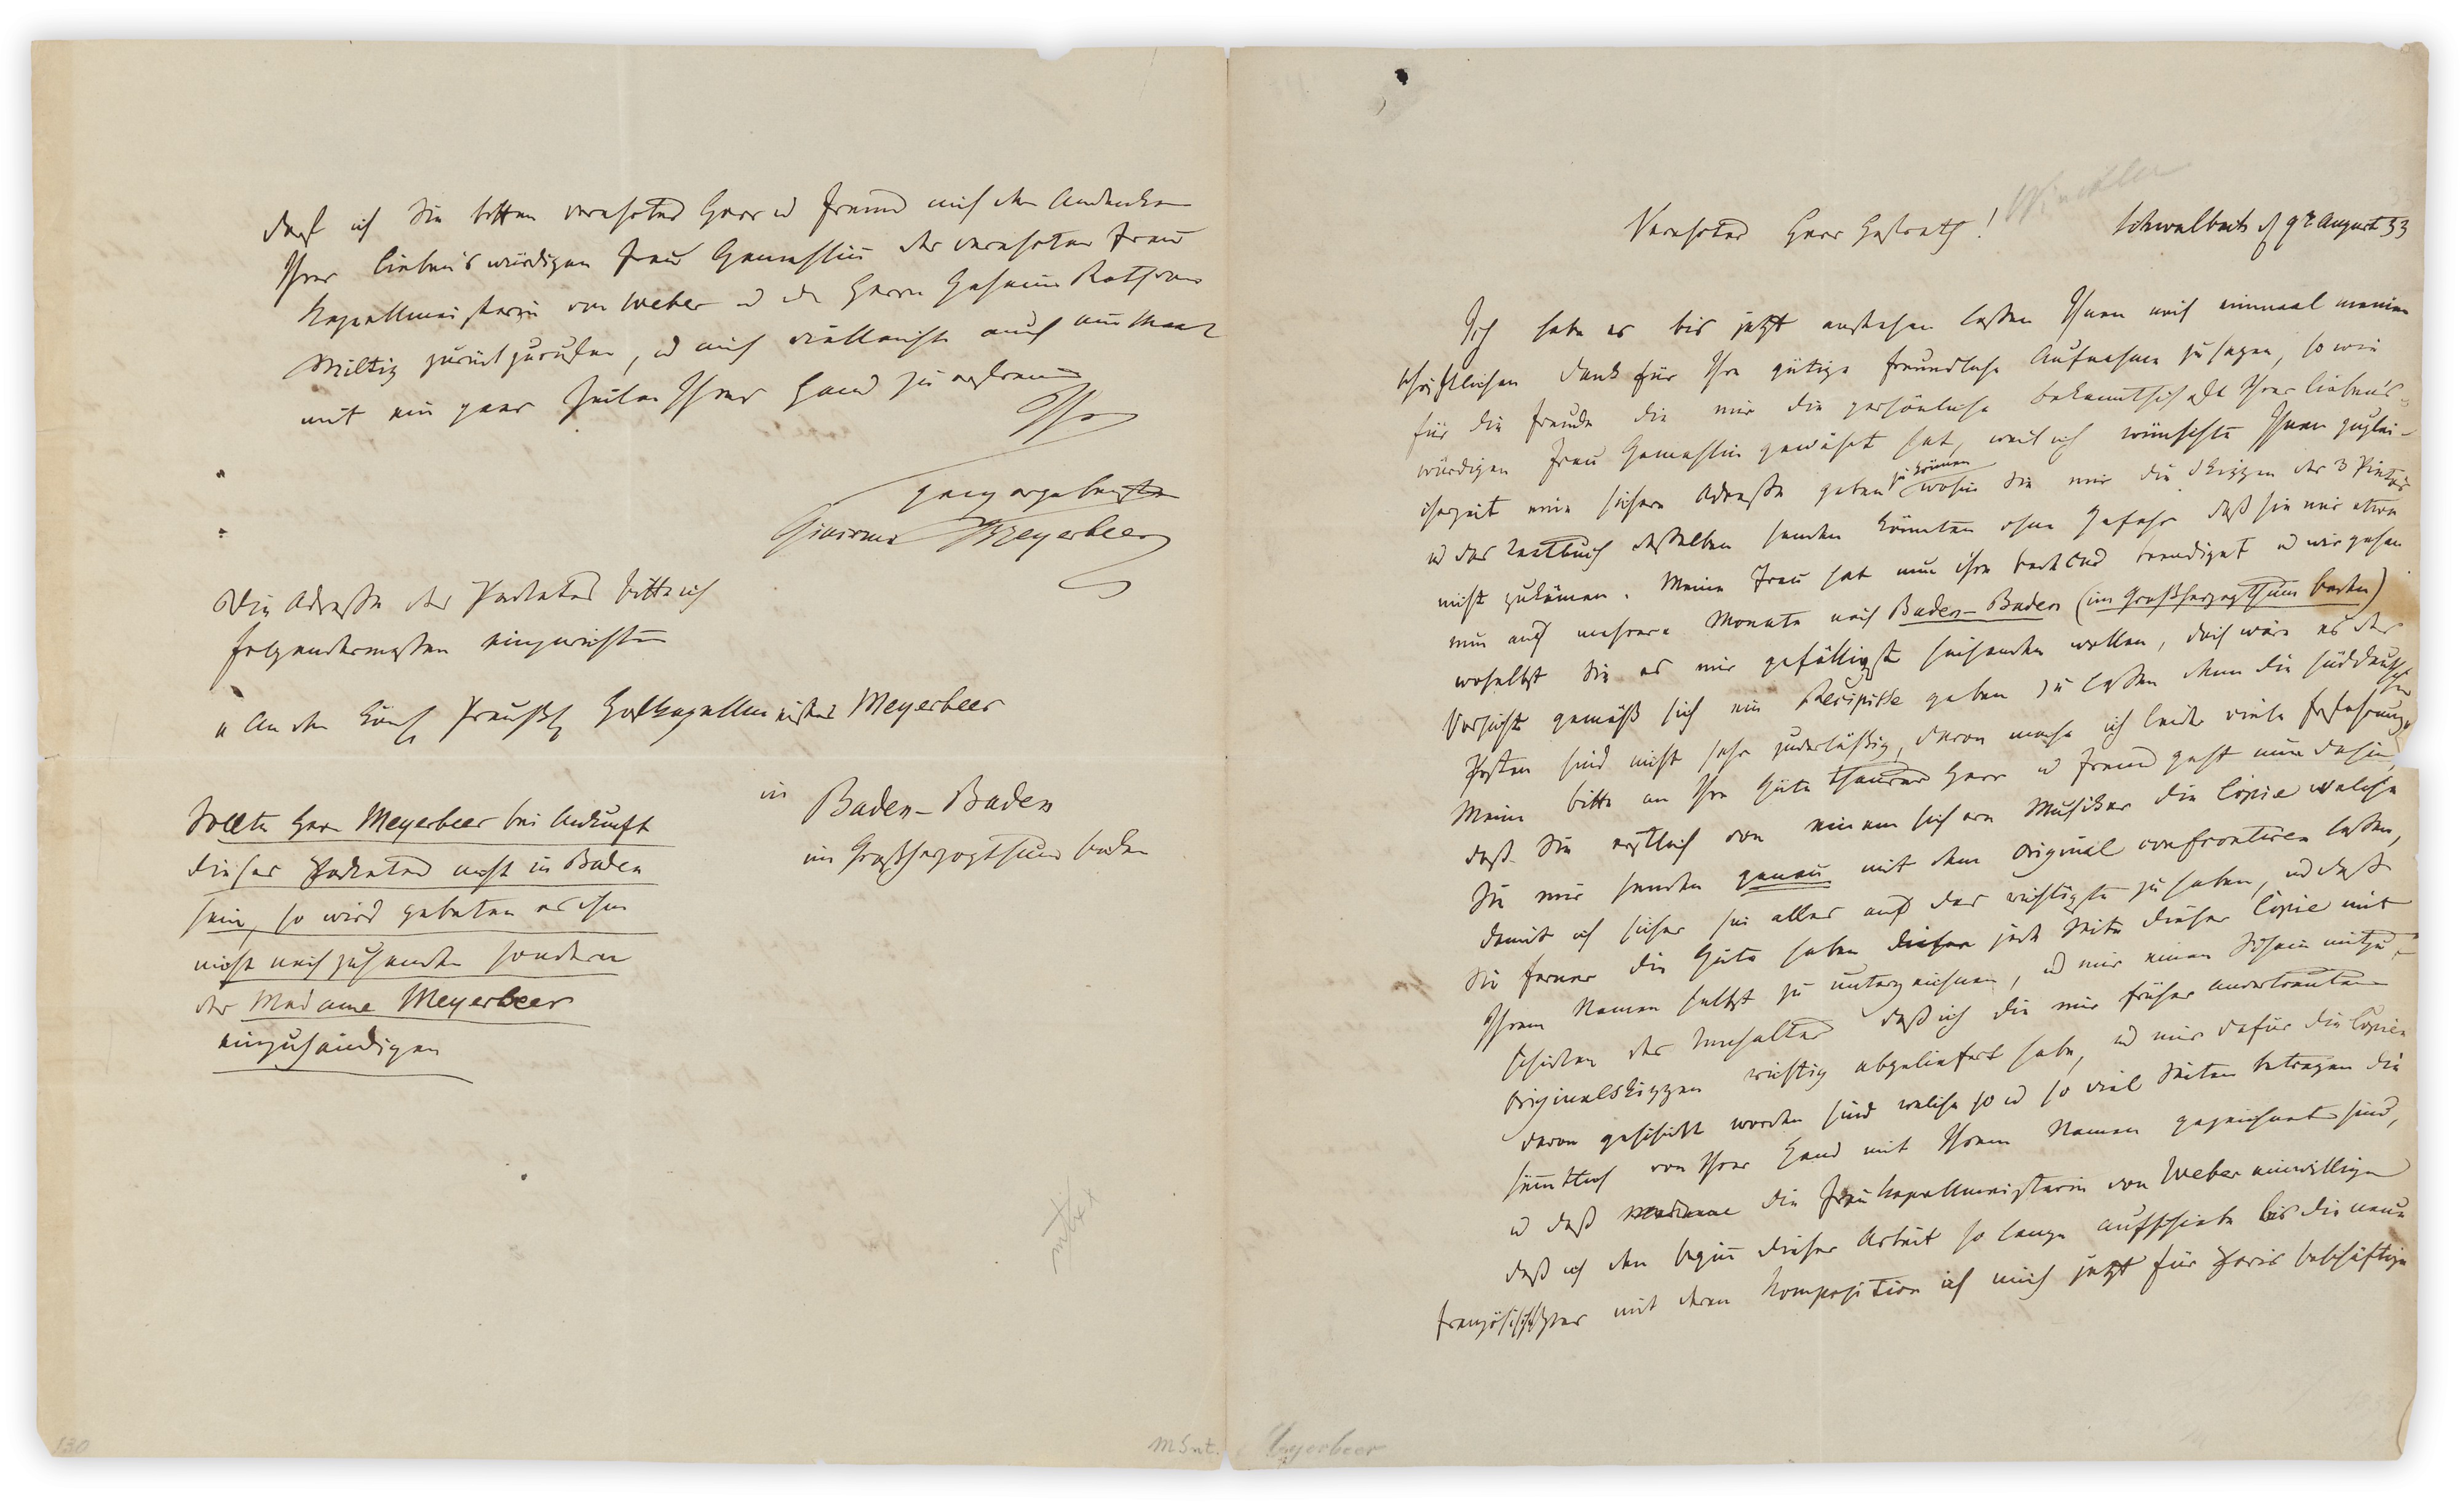 Verehrter Herr Hofrath!
Winckler
Schwalbach d 9t August 33
Ich habe es bis jetzt anstehen lassen Ihnen noch einmaal meinen
schriftlichen Dank für Ihre gütige freundliche Aufnahme zu sagen, so wie
für die Freude die mir die persönliche Bekanntschaft Ihrer liebens-
würdigen Frau Gemahlin gewährt hat, weil ich wünschte Ihnen zuglei-
cherzeit eine sichere Adresse geben zu können wohin Sie mir die Skizzen der 3 Pintos
u das Textbuch desselben senden könnten ohne Gefahr daß sie mir etwa
nicht zukämen. Meine Frau hat nun ihre Badecur beendiget u wir gehen
nun auf mehrere Monate nach Baden-Baden (im Großherzogthum Baden)
woselbst Sie es mir gefälligst hinsenden wollen, doch wäre es der
Vorsicht gemäß sich ein Recipisse geben zu lassen denn die süddeutschen
Posten sind nicht sehr zuverläßig, davon mache ich leider viele Erfahrungen
Meine Bitte an Ihre Güte theurer Herr u Freund geht nun dahin,
daß Sie erstlich von einem sichern Musiker die Copie welche
Sie mir senden genau mit dem Original confrontiren lassen,
damit ich sicher sei alles auf das richtigste zu haben, und daß
Sie ferner die Güte haben dieser jede Seite dieser Copie mit
Ihrem Namen selbst zu unterzeichnen, u mir einen Schein mitzu-
schicken des Inhaltes daß ich die mir früher anvertrauten
Originalskizzen richtig abgeliefert habe, u mir dafür die Copien
davon geschickt worden sind welche so u so viel Seiten betragen die
sämtlich von Ihrer Hand mit Ihrem Namen gezeichnet sind,
u daß Madame die Frau Kapellmeisterin von Weber einwillige
daß ich den Beginn dieser Arbeit so lange aufschiebe bis die neue
französische Oper mit deren Komposition ich mich jetzt für Paris beschäftige
Meyerbeer
Darf ich Sie bitten verehrter Herr u Freund mich dem Andenken
Ihrer liebenswürdigen Frau Gemahlin der verehrten Frau
Kapellmeisterin von Weber u des Herrn Geheim Raths von
Miltiz zurückzurufen, u mich vielleicht auch ein Maal
mit ein paar Zeilen Ihrer Hand zu erfreuen
Ihr
ganz ergebenster
Giacomo Meyerbeer
Die Adresse des Packetes bitte ich
folgendermaßen einzurichten
"An den König Preußl Hofkapellmeister Meyerbeer
in Baden-Baden
im Großherzogthum Baden
Sollte Herr Meyerbeer bei Ankunft
dieses Packetes nicht in Baden
sein, so wird gebeten es ihm
nicht nachzusenden sondern
der Madame Meyerbeer
einzuhändigen
130